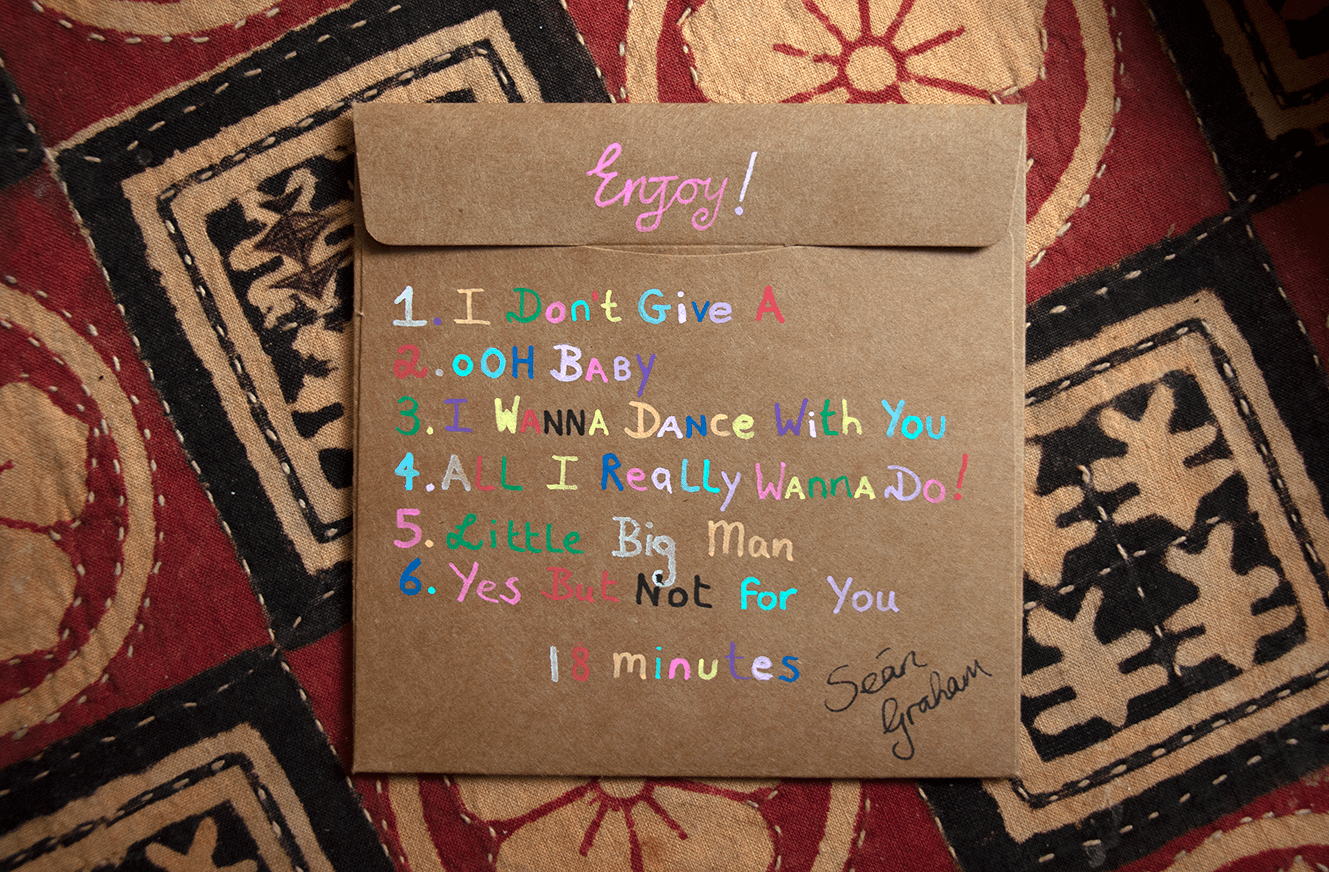 Enjoy!
1. I Don't Give A
2. OOH BABY
3. I WANNA DANCE With You
4. ALL I ReaLLy WANNA Do!
5. Little Big Man
6. Yes But Not For You
18 minutes
Seán
Graham